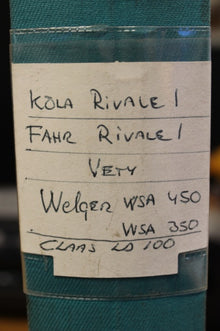 KOLA RIVALE 1
FAHR RIVALE 1
VETY
Welger WSA 450
WSA 350
CLAAS LD 100